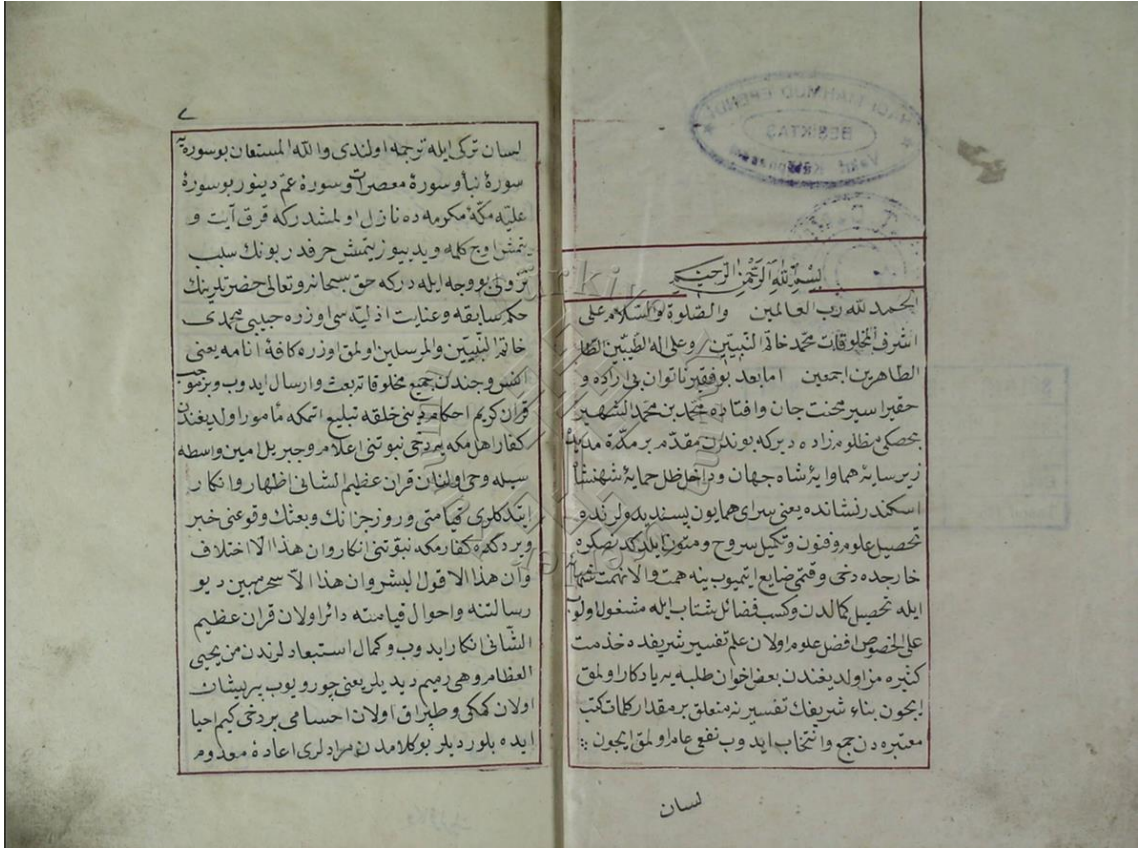 بسم الله الرحمن الرحيم
الحمد لله رب العالمين والصلوة والسلام على
اشرف المخلوقات محمد خاتم النبيين وعلى اله الطيبين الطا
الطاهرين اجمعين اما بعد بو فقير ناتوان بى اراده و
حقير اسير محنت جان وافتاده محمد بن محمد الشهير
مظلوم زاده ديركه بوندن مقدم بر مدة مديده
زير سايۀ همايۀ شاه جهان وداخل ظل حمايۀ شهنشا
اسكندر نشانده يعنى سراى همايون پسنديده لرنده
تحصيل علوم وفنون وتكميل شروح ومتون ايلدكدنصكره
خارجده دخى وقتمى ضايع ايتميوب ينه همت والا نهمت
ايله تحصيل كمالدن وكسب فضائل شتاب ايله مشغول اولوب
على الخصوص افضل علوم اولان علم تفسير شريفده خدمت
كثيره مز اولديغندن بعض اخوان طلبه يه يادكار اولمق
ايچون بناء شريفك تفسيرنه متعلق بر مقدار كلمات كتب
معتبره دن جمع وانتخاب ايدوب نفعى عام اولمق ايچون
لسان
٧
لسان تركى ايله ترجمه اولندى والله المستعان بو سوره يه
سورۀ نبأ وسورۀ معصرات وسورۀ عم دينور بو سورۀ
عليه مكۀ مكرمه ده نازل اولمشدر كه قرق آيت و
يتمش اوچ كلمه ويديوز يتمش حرفدر بونك سبب
نزولى بو وجه ايله دركه حق سبحانه وتعالى حضرتلرينك
حكم سابقه وعنايت ازليه سى اوزره حبيبى محمدى
خاتم النبيين والمرسلين اولمق اوزره كافۀ انامه يعنى
انس وجندن جميع مخلوقاته بعث وارسال ايدوب وبر موجب
قران كريم احكام دينى خلقه تبليغ اتمكه مأمور اولديغندن
كفار اهل مكه يه دخى نبوتنى اعلام وجبريل امين واسطه
سيله وحى اولنان قران عظيم الشانى اظهار وانكار
ايتدكلرى قيامتى وروز جزانك وبعثك وقوعنى خبر
ويردكده كفار مكه نبوتنى انكار وان هذا الا اختلاف
وان هذا الا قول البشر وان هذا الا سحر مبين ديو
رسالتنه واحوال قيامته دائر اولان قران عظيم
الشانى انكار ايدوب وكمال استبعادلرندن من يحيى
العظام وهى رميم ديديلر يعنى چورويوب پريشان
اولان كمكى وطپراق اولان اجسامى بر دخى كيم احيا
ايده بلور ديلر بو كلامدن مرادلرى اعادۀ معدوم